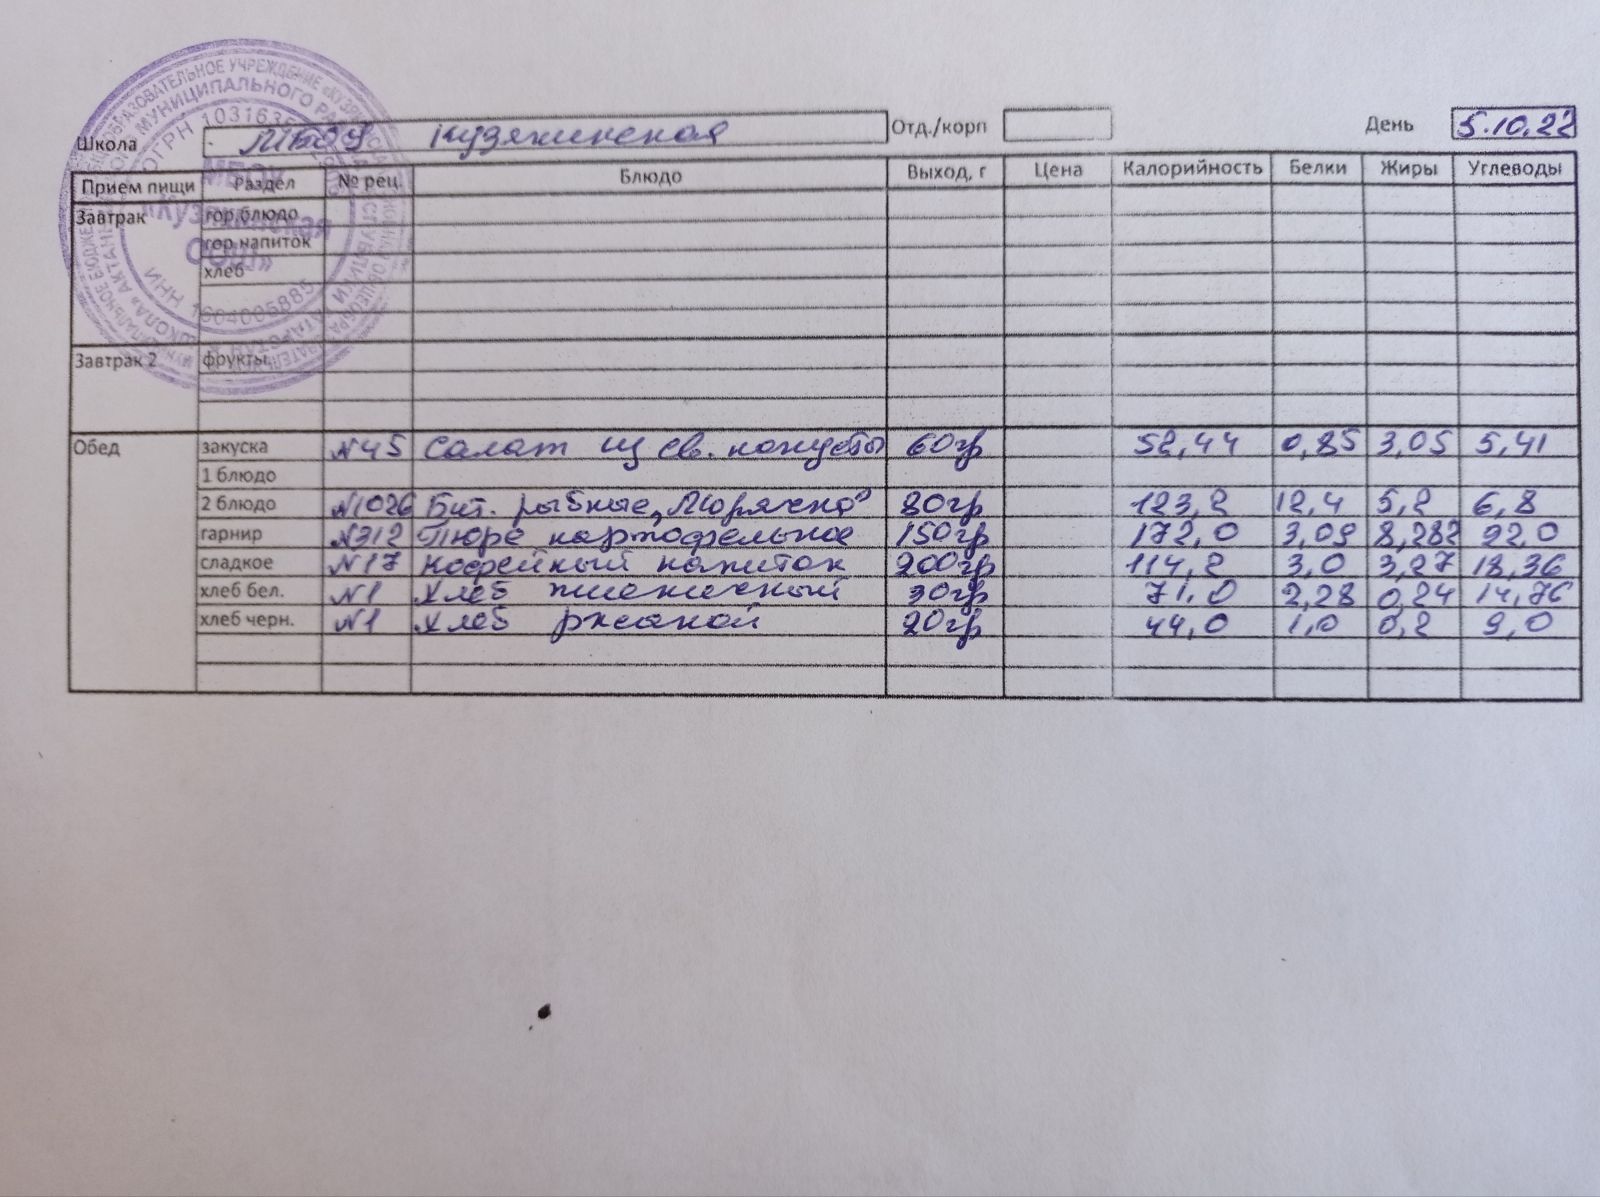 Школа МБОУ Кузякинская Отд./корп День 5.10.22
Прием пищи Раздел № рец. Блюдо Выход, г Цена Калорийность Белки Жиры Углеводы
Завтрак гор.блюдо
гор.напиток
хлеб
Завтрак 2 фрукты
Обед закуска №45 Салат из св. капусты 60гр 52,44 0,85 3,05 5,41
1 блюдо
2 блюдо №1026 Бит. рыбные „Морячка" 80гр 123,2 12,4 5,2 6,8
гарнир №312 Пюре картофельное 150гр 172,0 3,09 8,282 22,0
сладкое №17 Кофейный напиток 200гр 114,2 3,0 3,27 18,36
хлеб бел. №1 Хлеб пшеничный 30гр 71,0 2,28 0,24 14,76
хлеб черн. №1 Хлеб ржаной 20гр 44,0 1,0 0,2 9,0
МБОУ
«Кузякинская
ООШ»
ИНН 1604005885